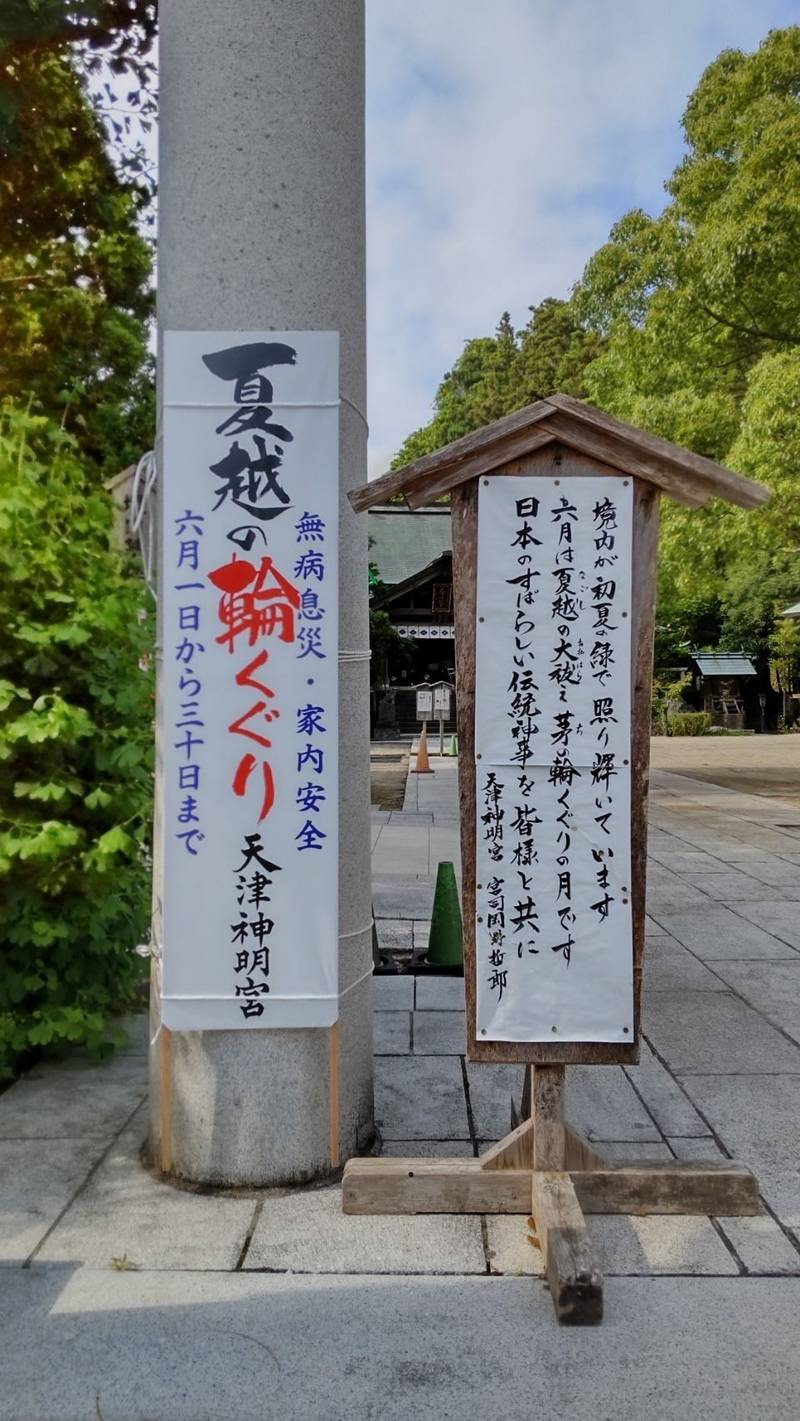 無病息災・家内安全
夏越の輪くぐり
天津神明宮
六月一日から三十日まで
境内が初夏の緑で照り輝いています
六月は夏越の大祓と茅の輪くぐりの月です
なごし
おおはらへ
ち
日本のすばらしい伝統神事を皆様と共に
天津神明宮 宮司岡野哲郎